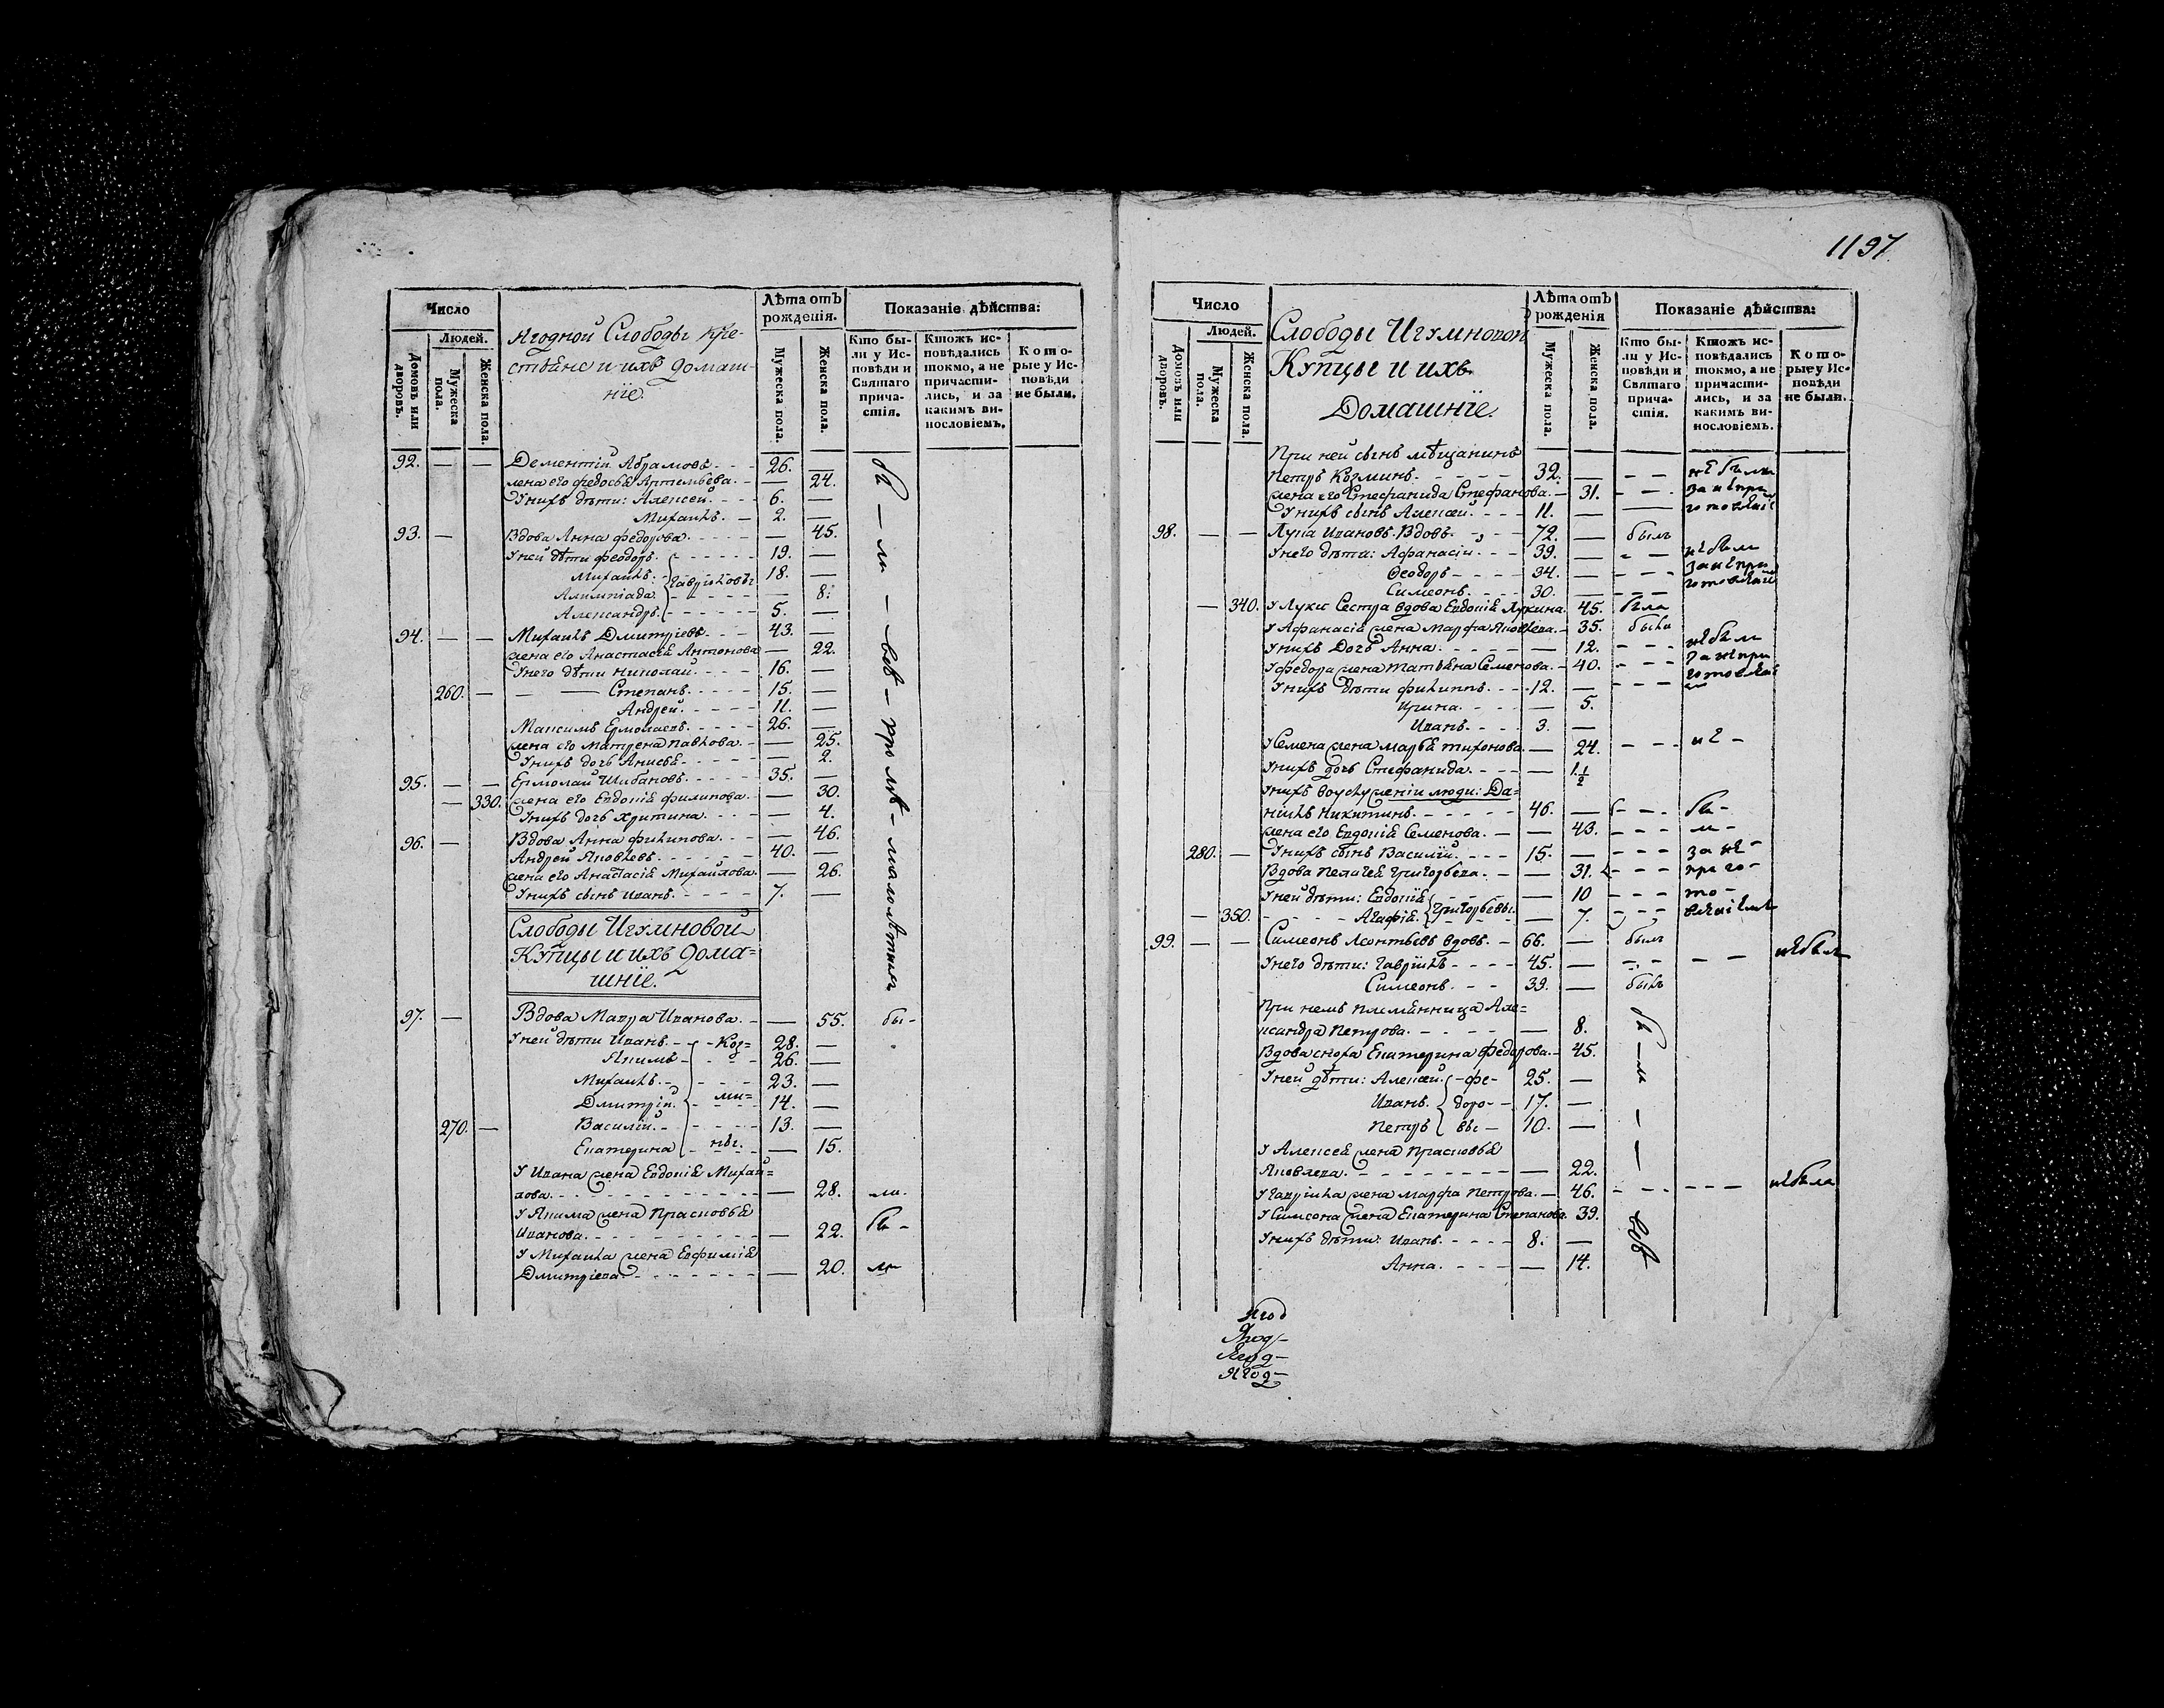 Число
Людей.
Домовъ или дворовъ.
Мужеска пола.
Женска пола.
Ягодной Слободы кре-
стьяне и ихъ домаш-
ніе.
Лѣта отъ рожденія.
Мужеска пола.
Женска пола.
Показаніе дѣйства:
Кто бы-
ли у Ис-
повѣди и
Святаго
прича-
стія.
Ктожъ ис-
повѣдались
токмо, а не
причасти-
лись, и за
какимъ ви-
нословіемъ.
Кото-
рые у Ис-
повѣди
не были.
92. — — Дементій Абрамовъ. - - - 26. —
жена его Федосья Артемьева. - — 24.
У нихъ дѣти: Алексей. - - - 6. —
Михаилъ. - 2. —
93. — Вдова Анна Федорова. - - - - — 45.
У ней дѣти Феодоръ. - - - - - 19. —
Михаилъ. Гавриловы 18. —
Алимпіада. - - - - — 8.
Александръ. - - - - - 5. —
94. — — Михаилъ Дмитріевъ. - - - 43. —
жена его Анастасія Антонова — 22.
У него дѣти Николай. - - - - 16. —
260. — — — Степанъ. - - - - 15. —
Андрей. - - - - 11. —
Максимъ Ермолаевъ. - - - - 26. —
жена его Матрена Павлова. - — 25.
У нихъ дочь Анисья. - - - - — 2.
95. — — Ермолай Шибановъ. - - - - 35. —
— 330. жена его Евдокія Филипова. - — 30.
У нихъ дочь Христина. - - - — 4.
96. — Вдова Анна Филипова. - - - — 46.
Андрей Яковлевъ. - - - - - 40. —
жена его Анастасія Михайлова. — 26.
У нихъ сынъ Иванъ. - - - - 7. —
бы — ли — всѣ — кромѣ — малолѣтныхъ
Слободы Игумновой
Купцы и ихъ дома=
шніе.
97. — Вдова Мавра Иванова. - — 55. бы-
У ней дѣти Иванъ. - - - Коз= 28. —
Якимъ - - - 26. —
Михаилъ. - - - - 23. —
Дмитрій. - ми= 14. —
270. — Василій. - - - - - 13. —
Екатерина - ны. — 15.
У Ивана жена Евдокія Михай=
лова. - - - - - - - - - - — 28. ли.
У Якима жена Прасковья
Иванова. - - - - - - - - — 22. бы -
У Михаила жена Евфимія
Дмитріева. - - - - - - - — 20. ли
1197.
Число
Людей.
Домовъ или дворовъ.
Мужеска пола.
Женска пола.
Слободы Игумновой
Купцы и ихъ
Домашніе.
Лѣта отъ рожденія
Мужеска пола.
Женска пола.
Показаніе дѣйства:
Кто бы-
ли у Ис-
повѣди и
Святаго
прича-
стія.
Ктожъ ис-
повѣдались
токмо, а не
причасти-
лись, и за
какимъ ви-
нословіемъ.
Кото-
рые у Ис-
повѣди
не были.
При ней сынъ мѣщанинъ
Петръ Козминъ. - - - - 32. — - - не были
жена его Стефанида Стефанова. - — 31. - - - за непри
У нихъ сынъ Алексей. - - - 11. — —
98. — — Лука Ивановъ вдовъ. - - - 72. — былъ
У него дѣти: Афанасій. - - - 39. — - - не были
Феодоръ - - - - 34. — - - - за непри
Симеонъ. - - - - 30. — - - -
— 340. У Луки Сестра вдова Евдокія Лукина. 45. была
У Афанасія жена Марфа Яковлева. - 35. была
У нихъ Дочь Анна. - - - - - — 12. - - - не были
У Федора жена Татьяна Семенова. - 40. - - - за непри
У нихъ дѣти Филиппъ. - - - 12. — - - -
Ирина. - - - - — 5.
Иванъ. - - - 3. —
У Семена жена Марья Тихонова. — 24. - - - не -
У нихъ дочь Стефанида. - - - — 1½
У нихъ во услуженіи люди: Да=
нилъ Никитинъ. - - - - - 46. — - - - бы-
жена его Евдокія Семенова. - — 43. - - - ли -
280. — У нихъ сынъ Василій. - - - 15. — - - - за не-
Вдова Пелагея Григорьева. - — 31. - - - приго-
У ней дѣти: Евдокія - - - - — 10 - - - то-
— 350. - - - - Агафія. Григорьевы. — 7. - - -
99. — — Симеонъ Леонтьевъ вдовъ. - 66. — былъ
У него дѣти: Гавріилъ - - - - 45. — - - - — не былъ
Симеонъ. - - - 39. — былъ
При немъ племянница Але=
ксандра Петрова. - - - - - — 8.
Вдова сноха Екатерина Федорова. - 45.
У ней дѣти: Алексей. - Фе- 25. —
Иванъ. доро- - 17. —
Петръ вы - 10. —
У Алексея жена Прасковья
Яковлева. - - - - - - - - — 22.
У Гавріила жена Марфа Петрова. - 46. - - - - - - не была
У Симеона жена Екатерина Степанова. 39.
У нихъ дѣти: Иванъ. - - - - 8. —
Анна. - - - - — 14.
бы — ли — — всѣ
Ягод
Ягод-
Ягод-
Ягод-